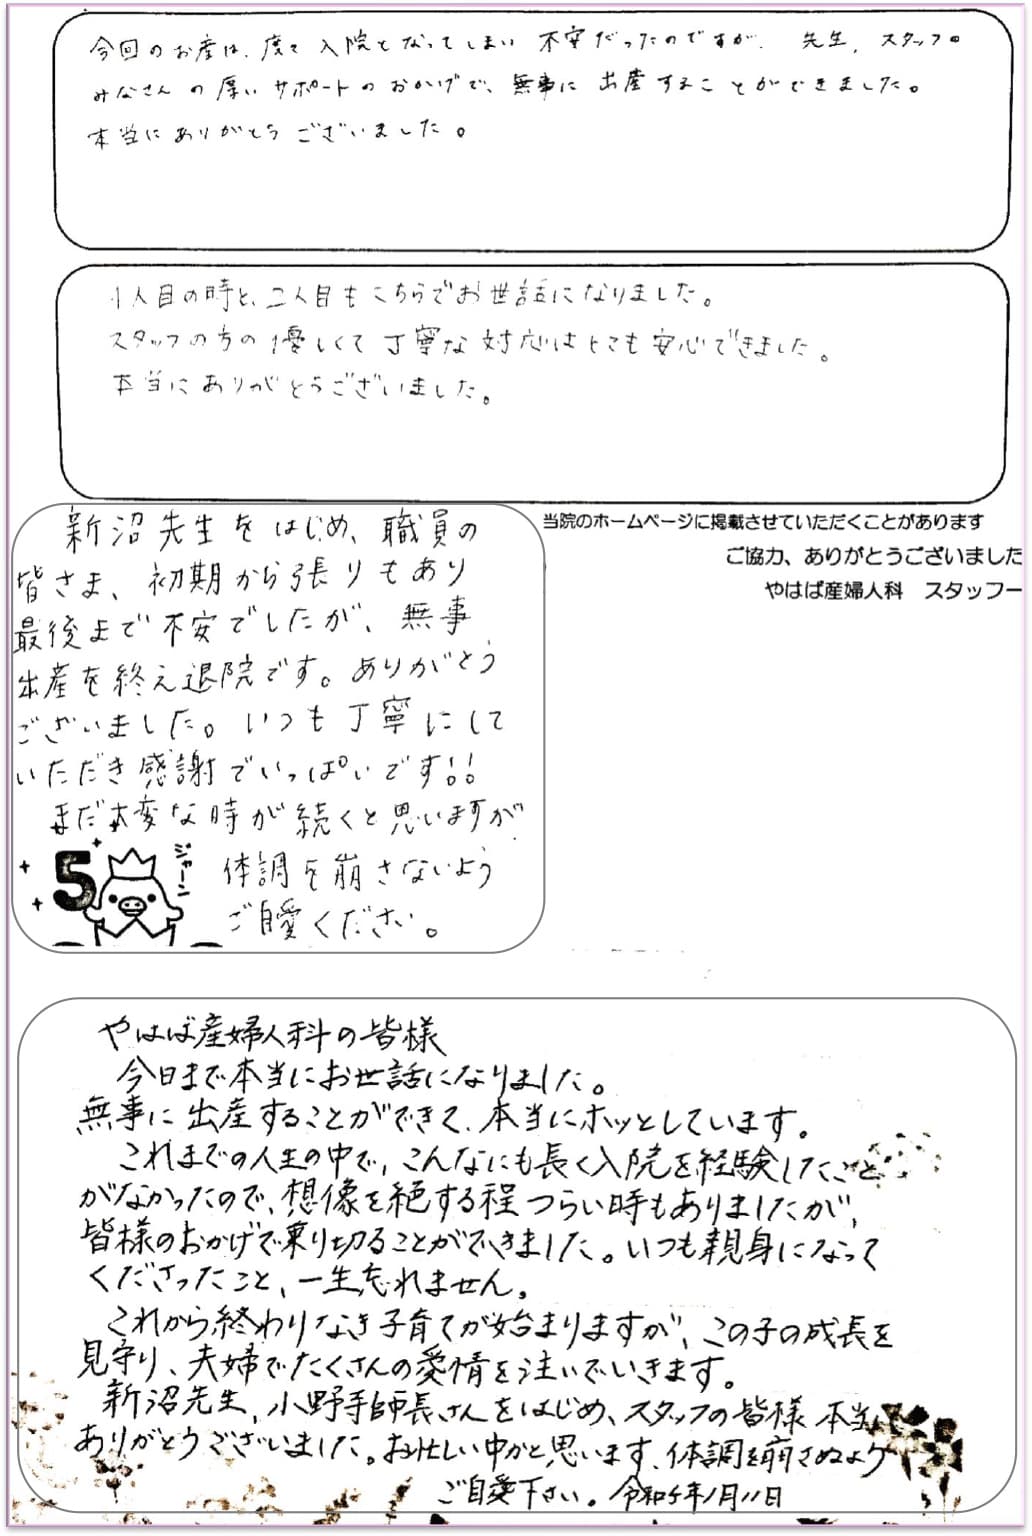 今回のお産は、度々入院となってしまい不安だったのですが、先生、スタッフの
みなさんの厚いサポートのおかげで、無事に出産することができました。
本当にありがとうございました。
1人目の時と、二人目もこちらでお世話になりました。
スタッフの方の優しくて丁寧な対応はとても安心できました。
本当にありがとうございました。
新沼先生をはじめ、職員の
皆さま、初期から張りもあり
最後まで不安でしたが、無事
出産を終え退院です。ありがとう
ございました。いつも丁寧にして
いただき感謝でいっぱいです!!
まだ大変な時が続くと思いますが
体調を崩さないよう
ご自愛ください。
5
ジャーン
当院のホームページに掲載させていただくことがあります
ご協力、ありがとうございました
やはば産婦人科 スタッフ一
やはば産婦人科の皆様
今日まで本当にお世話になりました。
無事に出産することができて、本当にホッとしています。
これまでの人生の中で、こんなにも長く入院を経験したこと
がなかったので、想像を絶する程つらい時もありましたが、
皆様のおかげで乗り切ることができました。いつも親身になって
くださったこと、一生忘れません。
これから終わりなき子育てが始まりますが、この子の成長を
見守り、夫婦でたくさんの愛情を注いでいきます。
新沼先生、小野寺師長さんをはじめ、スタッフの皆様 本当に
ありがとうございました。お忙しい中かと思います、体調を崩さぬよう
ご自愛下さい。令和5年1月11日